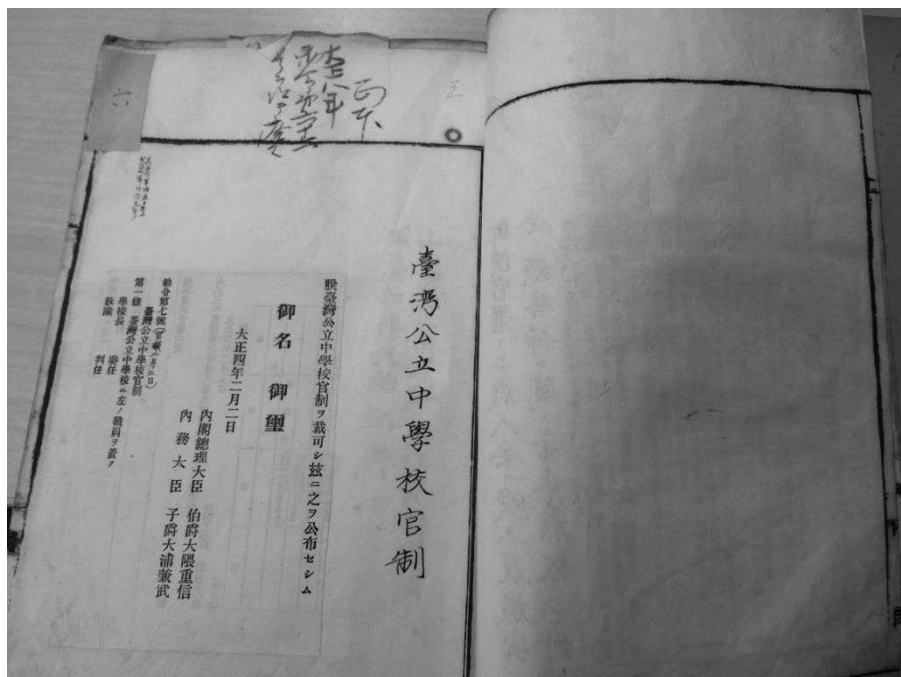 臺灣公立中學校官制
朕臺灣公立中學校官制ヲ裁可シ玆ニ之ヲ公布セシム
御名 御璽
大正四年二月二日
內閣總理大臣 伯爵大隈重信
內務大臣 子爵大浦兼武
勅令第七號(官報二月三日)
臺灣公立中學校官制
第一條 臺灣公立中學校ニ左ノ職員ヲ置ク
學校長 奏任
敎諭 判任
六